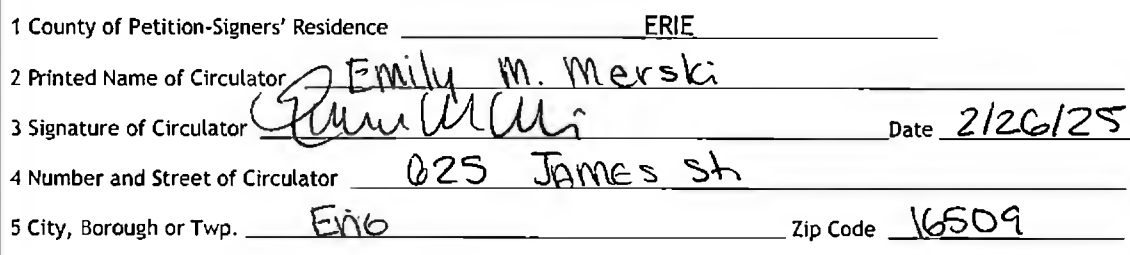 1 County of Petition-Signers' Residence ERIE
2 Printed Name of Circulator Emily M. Merski
3 Signature of Circulator Date 2/26/25
4 Number and Street of Circulator 625 James St
5 City, Borough or Twp. Erie Zip Code 16509